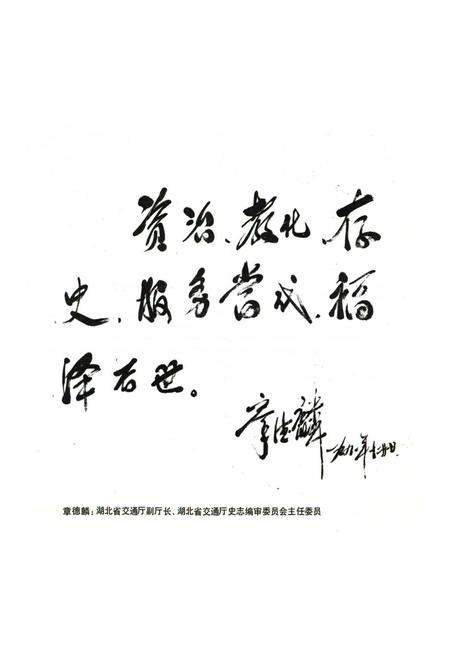 资治、教化、存
史,服务當代,福
泽后世。
章德麟
章德麟:湖北省交通厅副厅长、湖北省交通厅史志编审委员会主任委员